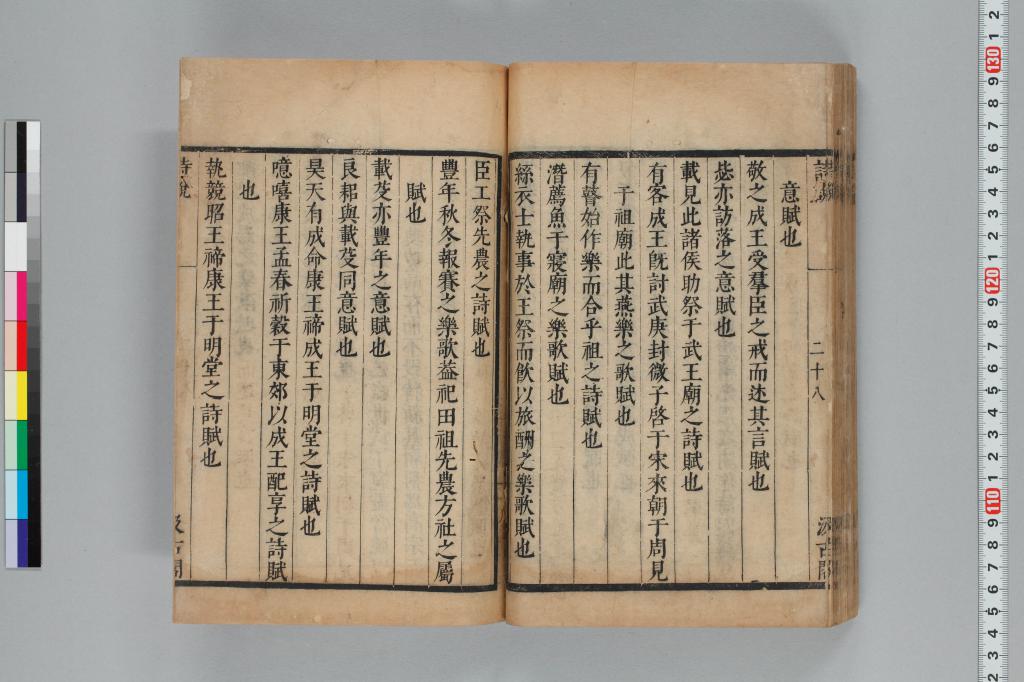 詩說
二十八
汲古閣
意賦也
敬之成王受羣臣之戒而述其言賦也
毖亦訪落之意賦也
載見此諸侯助祭于武王廟之詩賦也
有客成王旣討武庚封微子啓于宋來朝于周見
于祖廟此其燕樂之歌賦也
有瞽始作樂而合乎祖之詩賦也
潛薦魚于寢廟之樂歌賦也
絲衣士執事於王祭而飮以旅酬之樂歌賦也
臣工祭先農之詩賦也
豐年秋冬報賽之樂歌葢祀田祖先農方社之屬
賦也
載芟亦豐年之意賦也
良耜與載芟同意賦也
昊天有成命康王禘成王于明堂之詩賦也
噫嘻康王孟春祈穀于東郊以成王配享之詩賦
也
執競昭王禘康王于明堂之詩賦也
詩說
汲古閣